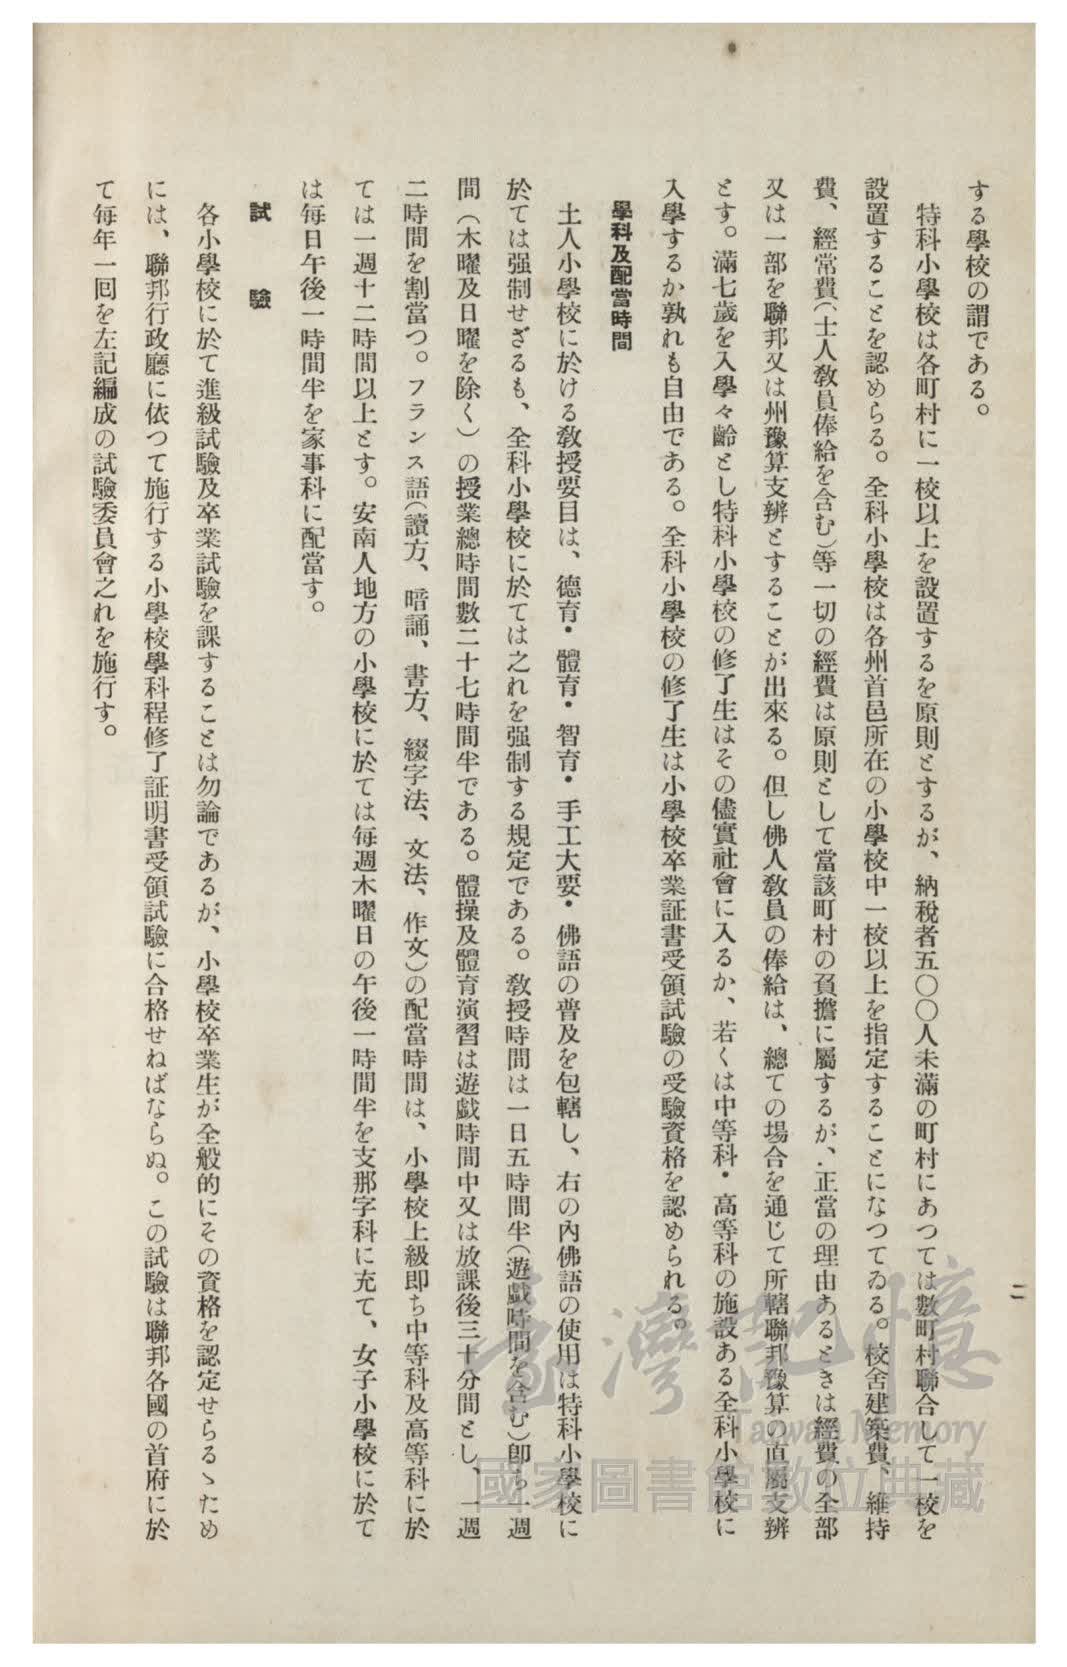 する學校の謂である。
特科小學校は各町村に一校以上を設置するを原則とするが、納稅者五〇〇人未滿の町村にあつては數町村聯合して一校を
設置することを認めらる。全科小學校は各州首邑所在の小學校中一校以上を指定することになつてゐる。校舍建築費、維持
費、經常費(士人敎員俸給を含む)等一切の經費は原則として當該町村の負擔に屬するが、正當の理由あるときは經費の全部
又は一部を聯邦又は州豫算支辨とすることが出來る。但し佛人敎員の俸給は、總ての場合を通じて所轄聯邦豫算の直屬支辨
とす。滿七歲を入學々齡とし特科小學校の修了生はその儘實社會に入るか、若くは中等科・高等科の施設ある全科小學校に
入學するか孰れも自由である。全科小學校の修了生は小學校卒業証書受領試驗の受驗資格を認められる。
學科及配當時間
土人小學校に於ける敎授要目は、德育・體育・智育・手工大要・佛語の普及を包轄し、右の內佛語の使用は特科小學校に
於ては强制せざるも、全科小學校に於ては之れを强制する規定である。敎授時間は一日五時間半(遊戲時間を含む)卽ち一週
間(木曜及日曜を除く)の授業總時間數二十七時間半である。體操及體育演習は遊戲時間中又は放課後三十分間とし、一週
二時間を割當つ。フランス語(讀方、暗誦、書方、綴字法、文法、作文)の配當時間は、小學校上級卽ち中等科及高等科に於
ては一週十二時間以上とす。安南人地方の小學校に於ては每週木曜日の午後一時間半を支那字科に充て、女子小學校に於て
は每日午後一時間半を家事科に配當す。
試驗
各小學校に於て進級試驗及卒業試驗を課することは勿論であるが、小學校卒業生が全般的にその資格を認定せらるゝため
には、聯邦行政廳に依つて施行する小學校學科程修了証明書受領試驗に合格せねばならぬ。この試驗は聯邦各國の首府に於
て每年一回を左記編成の試驗委員會之れを施行す。
二
臺灣記憶
Taiwan Memory
國家圖書館數位典藏